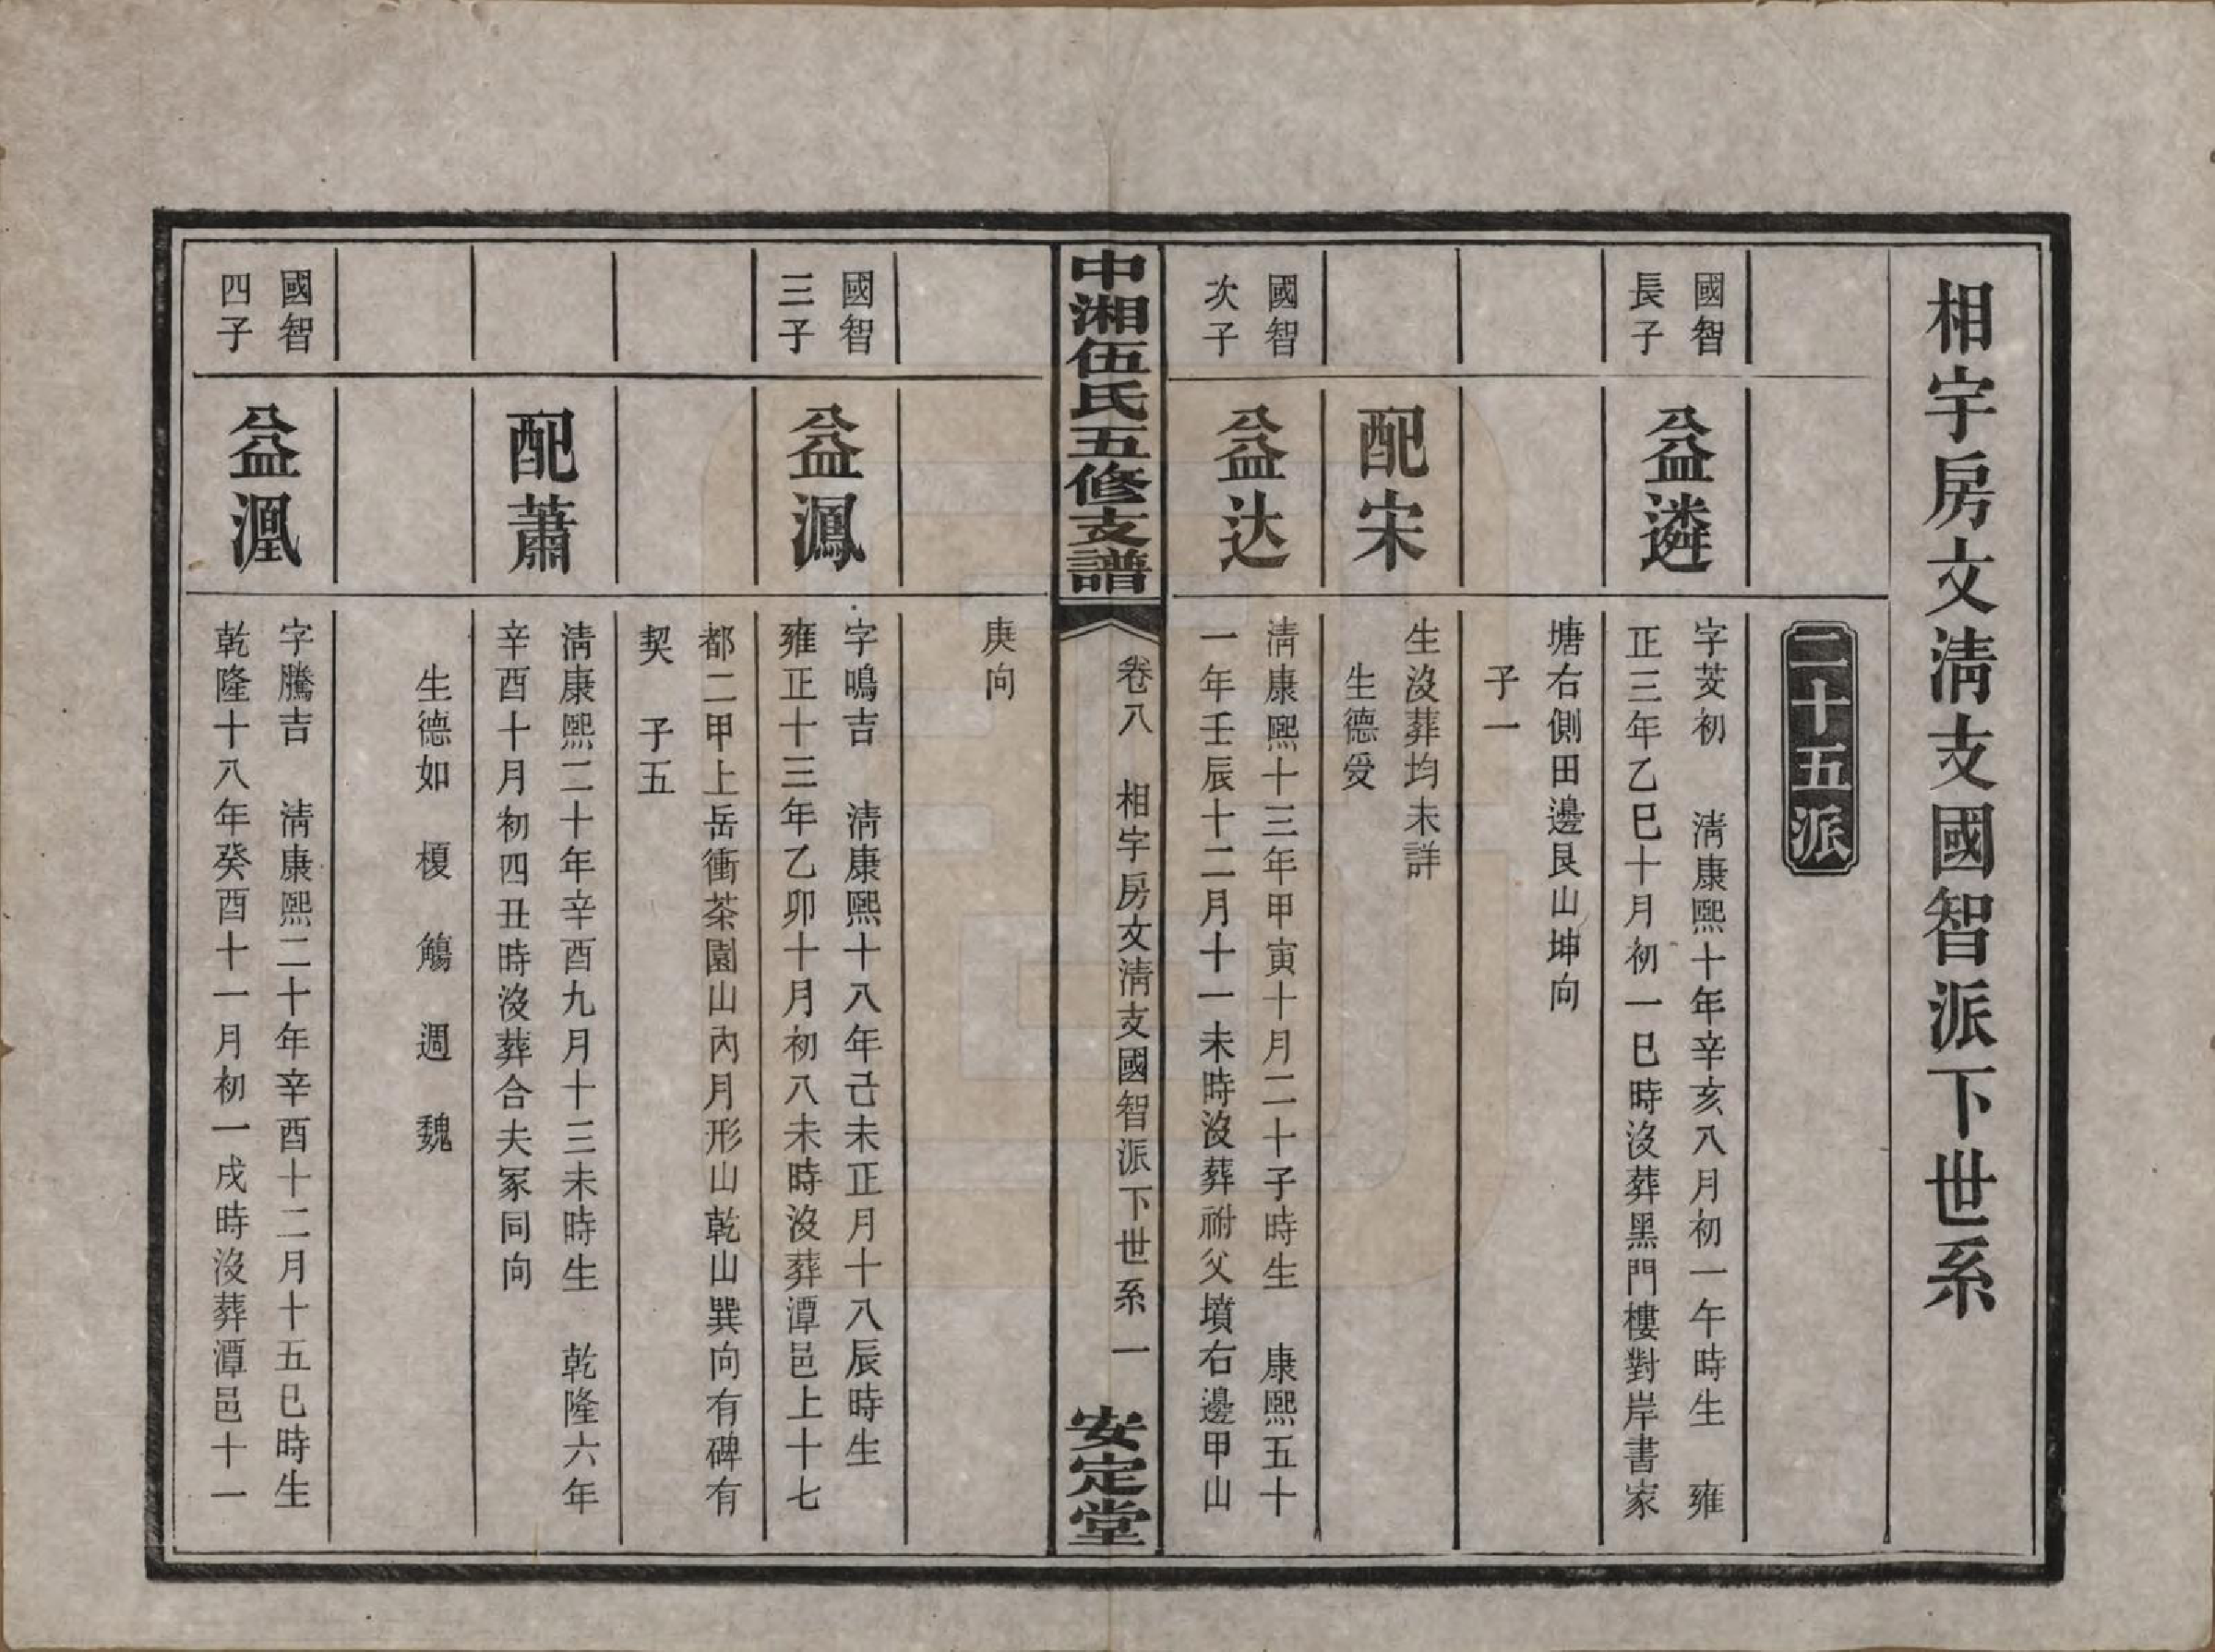 相宇房文淸支國智派下世系
二十五派
國智
長子
益遴
字芠初 淸康熙十年辛亥八月初一午時生 雍
正三年乙巳十月初一巳時沒葬黑門樓對岸書家
塘右側田邊艮山坤向
子一
配宋
生沒葬均未詳
生德爱
國智
次子
益达
淸康熙十三年甲寅十月二十子時生 康熙五十
一年壬辰十二月十一未時沒葬祔父墳右邊甲山
中湘伍氏五修支譜
卷八 相宇房文淸支國智派下世系 一
安定堂
庚向
國智
三子
益鳳
字鳴吉 淸康熙十八年己未正月十八辰時生
雍正十三年乙卯十月初八未時沒葬潭邑上十七
都二甲上岳衝茶園山內月形山乾山巽向有碑有
契 子五
配蕭
淸康熙二十年辛酉九月十三未時生 乾隆六年
辛酉十月初四丑時沒葬合夫冢同向
生德如 榎 觴 週 魏
國智
四子
益湹
字騰吉 淸康熙二十年辛酉十二月十五巳時生
乾隆十八年癸酉十一月初一戌時沒葬潭邑十一